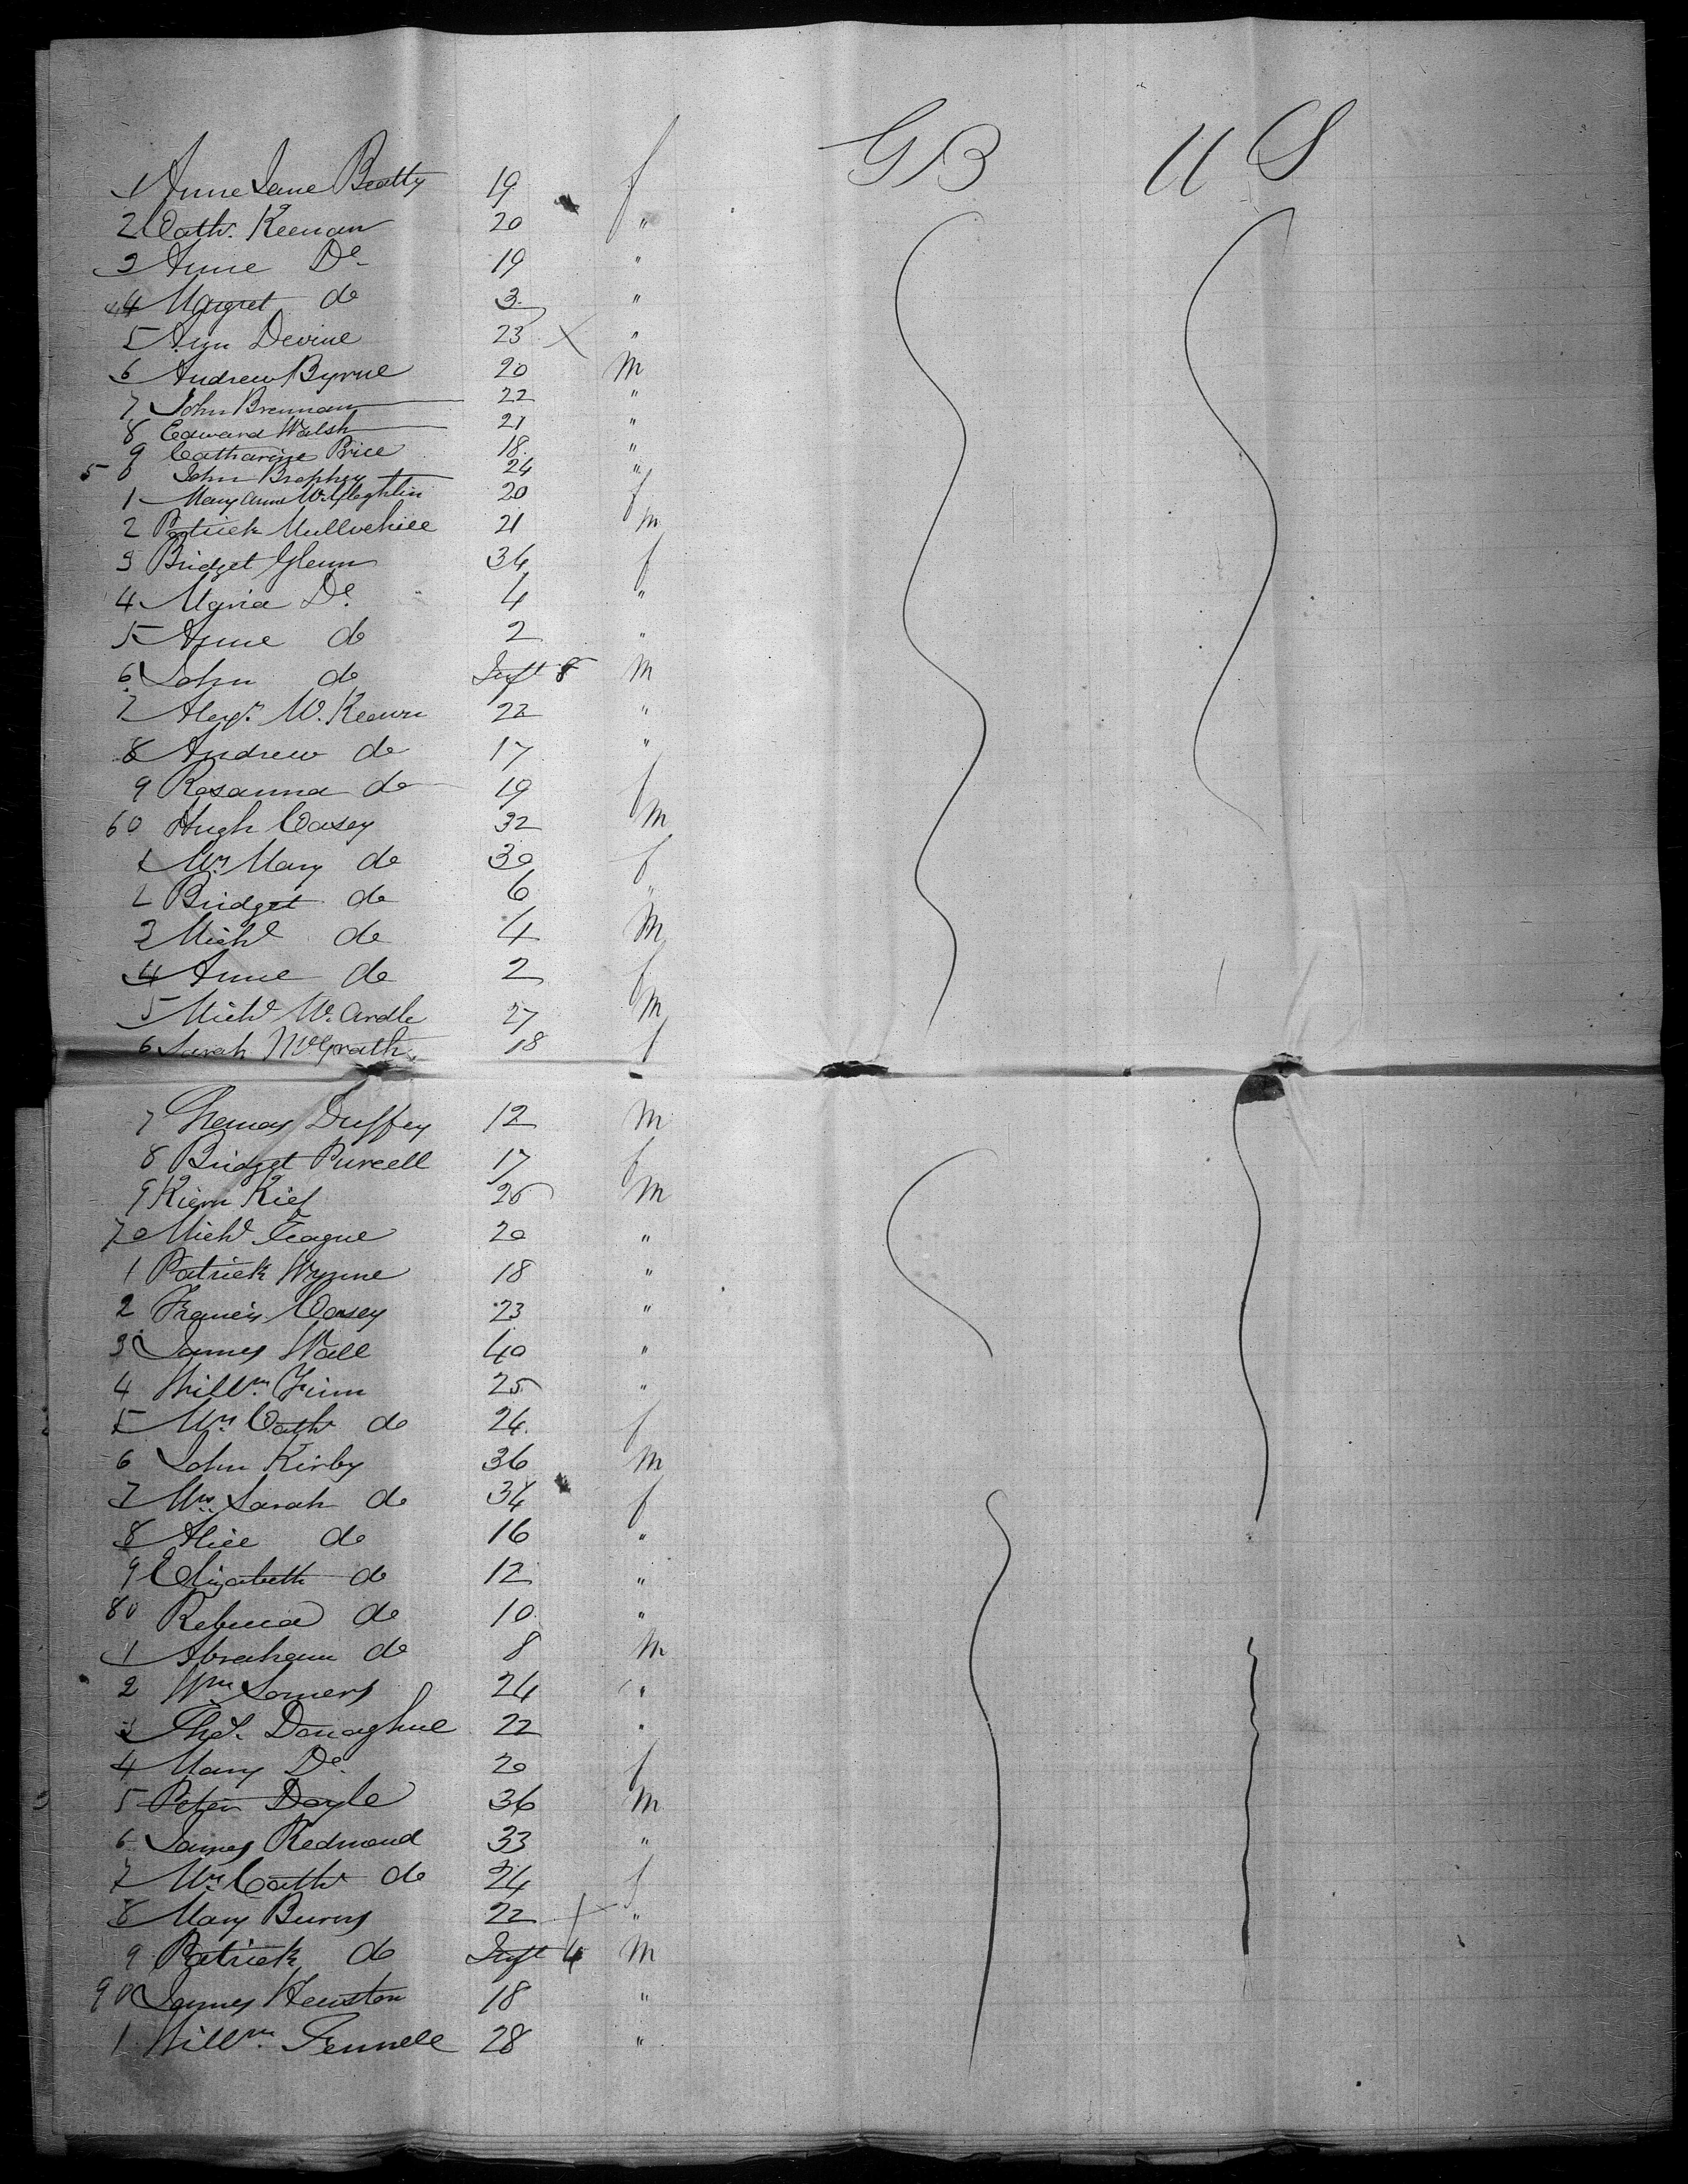 G B U S
1 Anne Jane Beatty 19 f
2 Cath. Keenan 20 "
3 Anne Do 19 "
44 Margret do 3 "
5 Ann Devine 23 X "
6 Andrew Byrne 20 M
7 John Brennan 22 "
8 Edward Walsh 21 "
9 Catharine Price 18 "
50 John Brophey 24 "
1 Mary Anne McGloghlin 20 f
2 Patrick Mullvehill 21 M
3 Bridget Glenn 34 f
4 Maria Do 4 "
5 Anne do 2 "
6 John do Inft 8 M
7 Alexr. Mc.Keown 22 "
8 Andrew do 17 "
9 Rosanna do 19 f
60 Hugh Casey 32 M
1 Mrs Mary do 30 f
2 Bridget do 6 "
3 Michl do 4 M
4 Anne do 2 f
5 Michl Mc.Ardle 27 M
6 Sarah McGrath 18 f
7 Thomas Duffey 12 M
8 Bridget Purcell 17 f
9 Kiern Kief 25 M
70 Michl Teague 20 "
1 Patrick Wynne 18 "
2 Francis Casey 23 "
3 James Wall 40 "
4 Willm. Finn 25 "
5 Mrs Cath do 24 f
6 John Kirby 36 M
7 Mrs Sarah do 34 f
8 Alice do 16 "
9 Elizabeth do 12 "
80 Rebecca do 10 "
1 Abraham do 8 M
2 Wm Somers 24 "
3 Thos. Donaghue 22 "
4 Mary Do 20 f
5 Peter Doyle 36 M
6 James Redmond 33 "
7 Mrs Cath do 24 f
8 Mary Burns 22 "
9 Patrick do Inft 4 M
90 James Hewston 18 "
1 Willm. Fennell 28 "